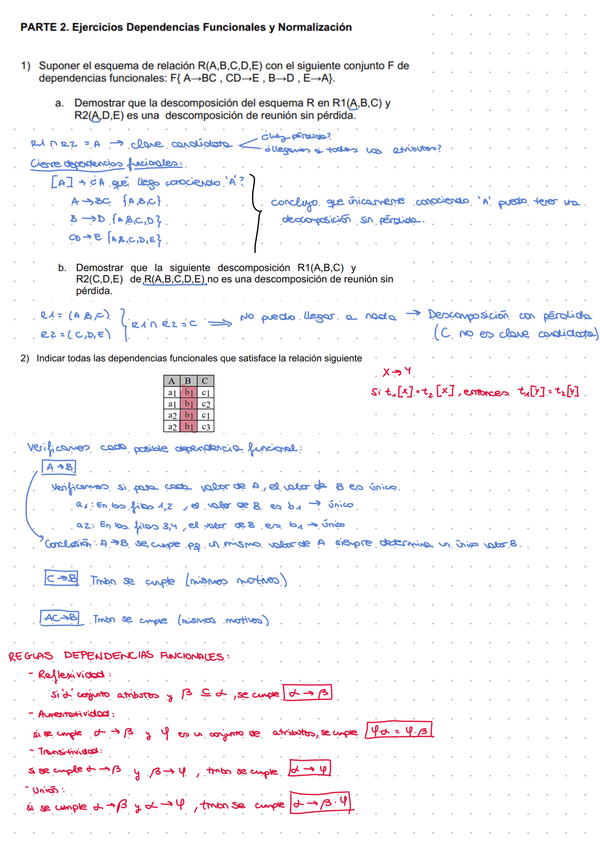 PARTE 2. Ejercicios Dependencias Funcionales y Normalización
1) Suponer el esquema de relación R(A,B,C,D,E) con el siguiente conjunto F de
dependencias funcionales: F{ A→BC , CD→E , B→D , E→A}.
a. Demostrar que la descomposición del esquema R en R1(A,B,C) y
R2(A,D,E) es una descomposición de reunión sin pérdida.
R1 ∩ R2 = A → clave candidata
¿hay pérdida?
¿llegamos a todos los atributos?
Cierre dependencias funcionales:
[A] → ¿A qué llego conociendo 'A'?
A→BC {A,B,C}
B→D {A,B,C,D}
CD→E {A,B,C,D,E}
concluyo que únicamente conociendo 'A' puedo tener una
descomposición sin pérdida.
b. Demostrar que la siguiente descomposición R1(A,B,C) y
R2(C,D,E) de R(A,B,C,D,E) no es una descomposición de reunión sin
pérdida.
R1 = (A,B,C)
R2 = (C,D,E)
R1 ∩ R2 = C ⇒ No puedo llegar a nada → Descomposición con pérdida
(C no es clave candidata)
2) Indicar todas las dependencias funcionales que satisface la relación siguiente
A B C
a1 b1 c1
a1 b1 c2
a2 b1 c1
a2 b1 c3
X→Y
Si t1[X]=t2[X], entonces t1[Y]=t2[Y]
Verificamos cada posible dependencia funcional:
A→B
Verificamos si para cada valor de A, el valor de B es único.
a1: En las filas 1,2 , el valor de B es b1 → único
a2: En las filas 3,4, el valor de B es b1 → único
Conclusión: A→B se cumple pq un mismo valor de A siempre determina un único valor B.
C→B Tmbn se cumple (mismos motivos)
AC→B Tmbn se cumple (mismos motivos)
REGLAS DEPENDENCIAS FUNCIONALES:
- Reflexividad:
Si 'α' conjunto atributos y β ⊆ α, se cumple α → β
- Aumentatividad:
si se cumple α → β y φ es un conjunto de atributos, se cumple φα = φ.β
- Transitividad:
si se cumple α → β y β → φ , tmbn se cumple α → φ
- Unión:
si se cumple α → β y α → φ , tmbn se cumple α → β.φ